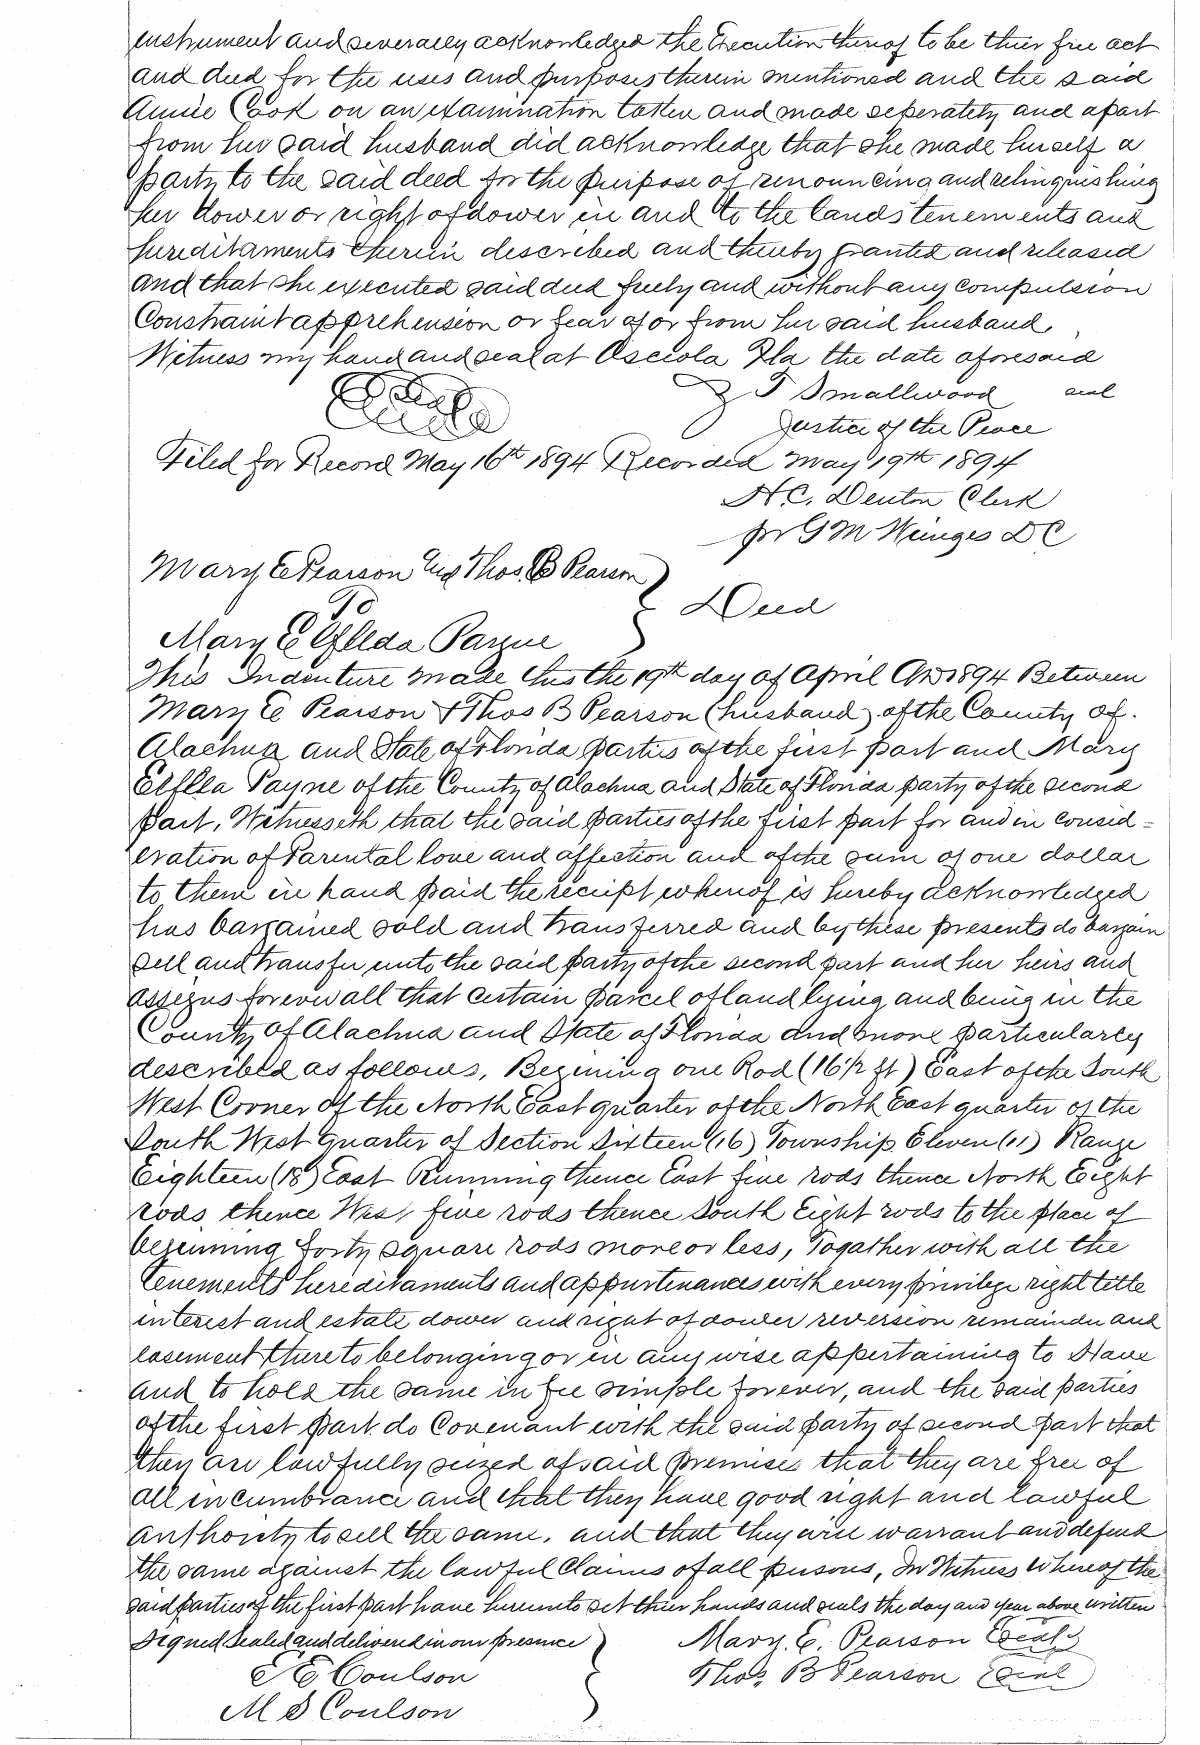 instrument and severally acknowledged the Execution thereof to be thier free act
and deed for the uses and purposes therein mentioned and the said
Annie Cook on an examination taken and made seperately and apart
from her said husband did acknowledge that she made herself a
party to the said deed for the purpose of renouncing and relinquishing
her dower or right of dower in and to the lands tenements and
hereditaments therein described and thereby granted and released
and that she executed said deed freely and without any compulsion
Constraint apprehension or fear of or from her said husband.
Witness my hand and seal at Osceola Fla the date aforesaid
Seal J T Smallwood seal
Justice of the Peace
Filed for Record May 16th 1894 Recorded May 19th 1894
H.C. Denton Clerk
pr G M Weinges D C
Mary E Pearson and Thos. B Pearson
To } Deed
Mary E Elflleda Payne
This Indenture made this the 19th day of April AD 1894 Between
Mary E Pearson & Thos B Pearson (husband) of the County of
Alachua and State of Florida parties of the first part and Mary
Elflla Payne of the County of Alachua and State of Florida party of the second
part, Witnesseth that the said parties of the first part for and in consid=
eration of Parental love and affection and of the sum of one dollar
to them in hand paid the receipt whereof is hereby acknowledged
has bargained sold and transferred and by these presents do bargain
sell and transfer unto the said party of the second part and her heirs and
assigns forever all that certain parcel of land lying and being in the
County of Alachua and State of Florida and more particularly
described as follows, Begining one Rod (16 1/2 ft) East of the South
West Corner of the North East quarter of the North East quarter of the
South West quarter of Section Sixteen (16) Township Eleven (11) Range
Eighteen (18) East Running thence East five rods thence North Eight
rods thence West five rods thence South Eight rods to the place of
beginning forty square rods more or less, Together with all the
tenements hereditaments and appurtenances with every privilege right title
interest and estate dower and right of dower reversion remainder and
easement thereto belonging or in any wise appertaining to Have
and to hold the same in fee simple forever, and the said parties
of the first part do Covenant with the said party of second part that
they are lawfully seized of said premises that they are free of
all incumbrance and that they have good right and lawful
authority to sell the same. and that they will warrant and defend
the same against the lawful Claims of all persons, In Witness Whereof the
said parties of the first part have hereunto set thier hands and seals the day and year above written
Signed sealed and delivered in our presence } Mary. E. Pearson Seal
E E Coulson Thos, B Pearson Seal
M S Coulson